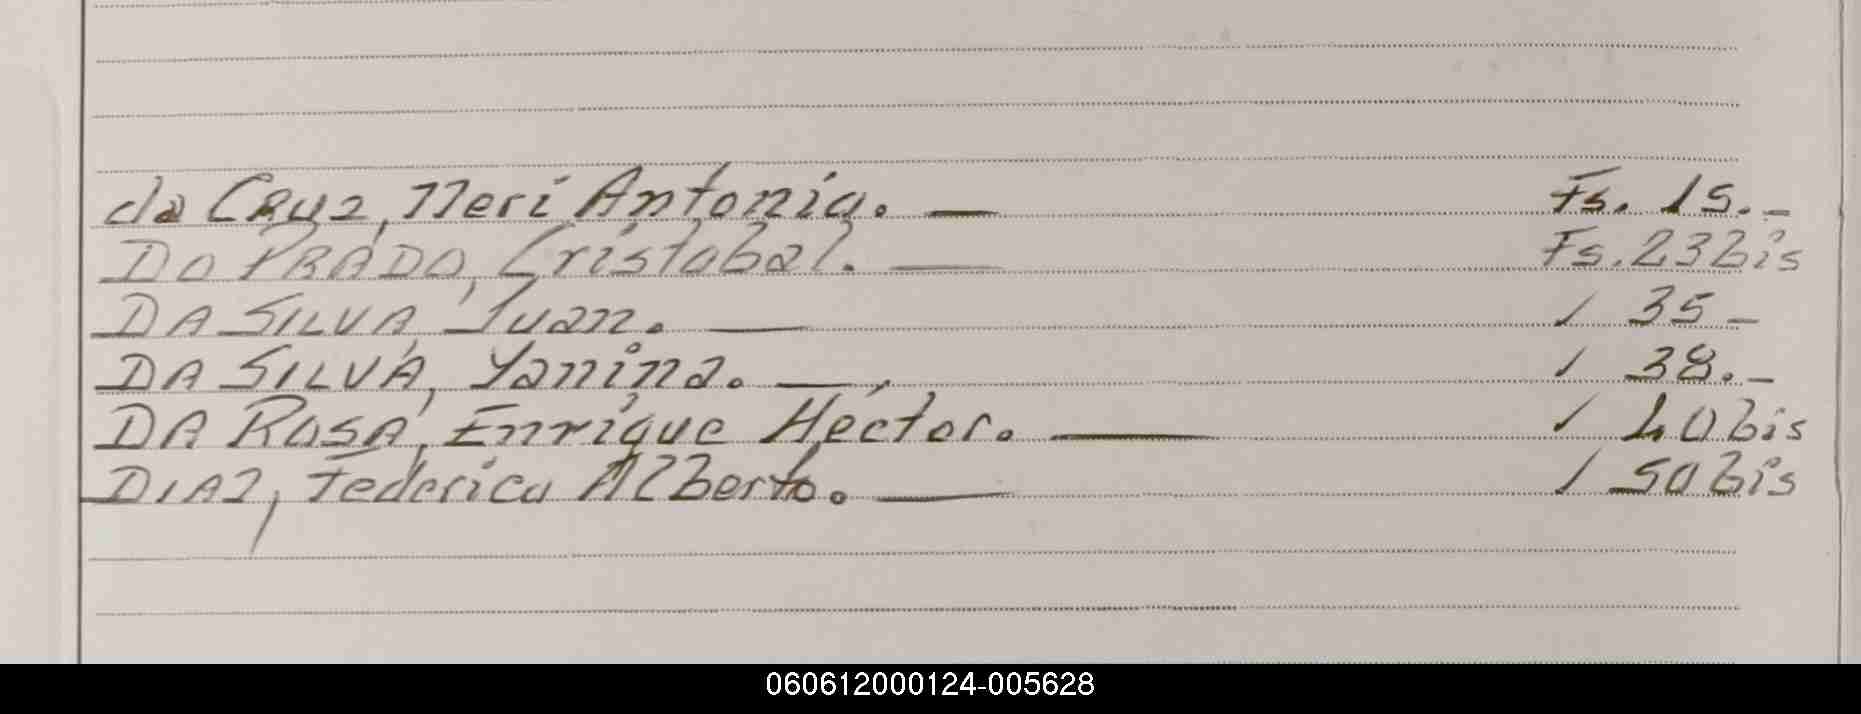 da Cruz, Neri Antonia. — Fs. 15. –
DO PRADO, Cristobal. — Fs. 23 bis
DA SILVA, Juan. — / 35 –
DA SILVA, Yanina. — / 38. –
DA ROSA, Enrique Héctor. — / 40 bis
DIAZ, Federico Alberto. — / 50 bis
060612000124-005628